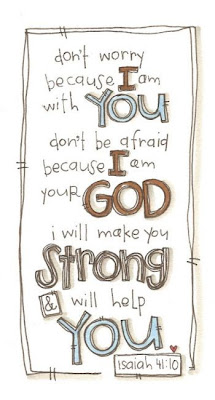 don't worry
because I am
with YOU
don't be afraid
because I am
your GOD
i will make you
STRONG
& will help
YOU
isaiah 41:10